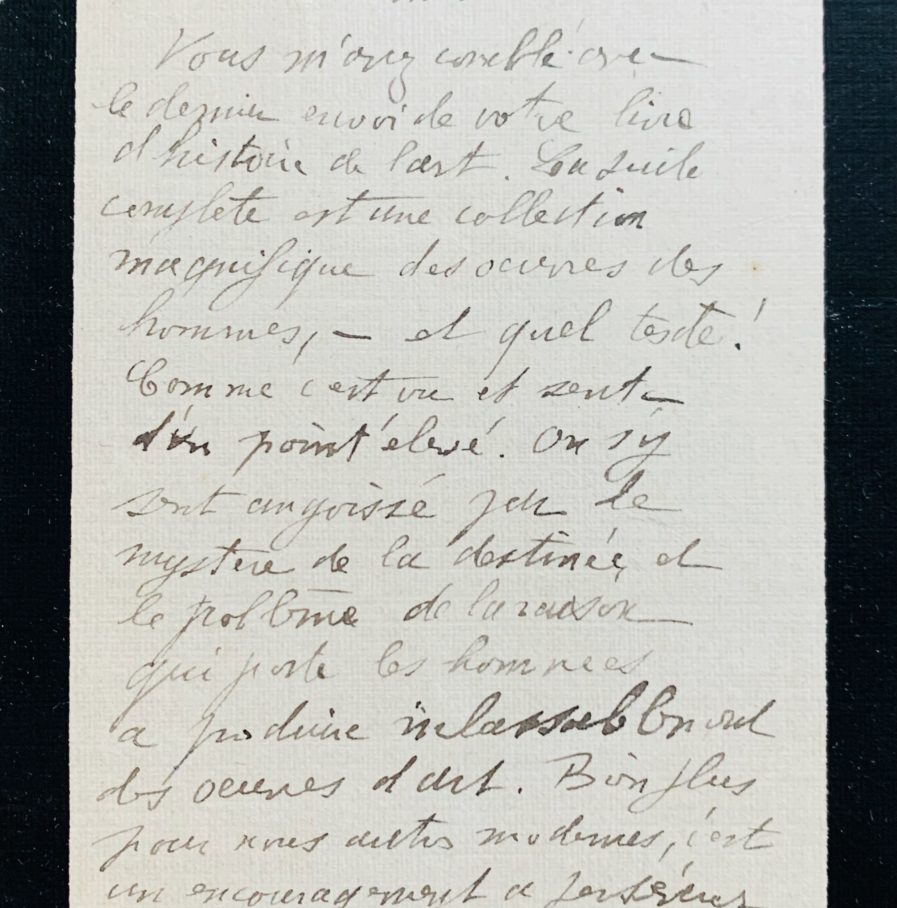 Vous m'avez comblé avec
le dernier envoi de votre livre
d'histoire de l'art. La suite
complete est une collection
magnifique des oeuvres des
hommes, — et quel texte!
Comme c'est vu et senti
d'un point élevé. On s'y
sent angoissé par le
mystere de la destinée et
le problème de la raison
qui porte les hommes
a produire inlassablement
des oeuvres d'art. Bien plus
pour nous autres modernes, c'est
un encouragement a persévérer